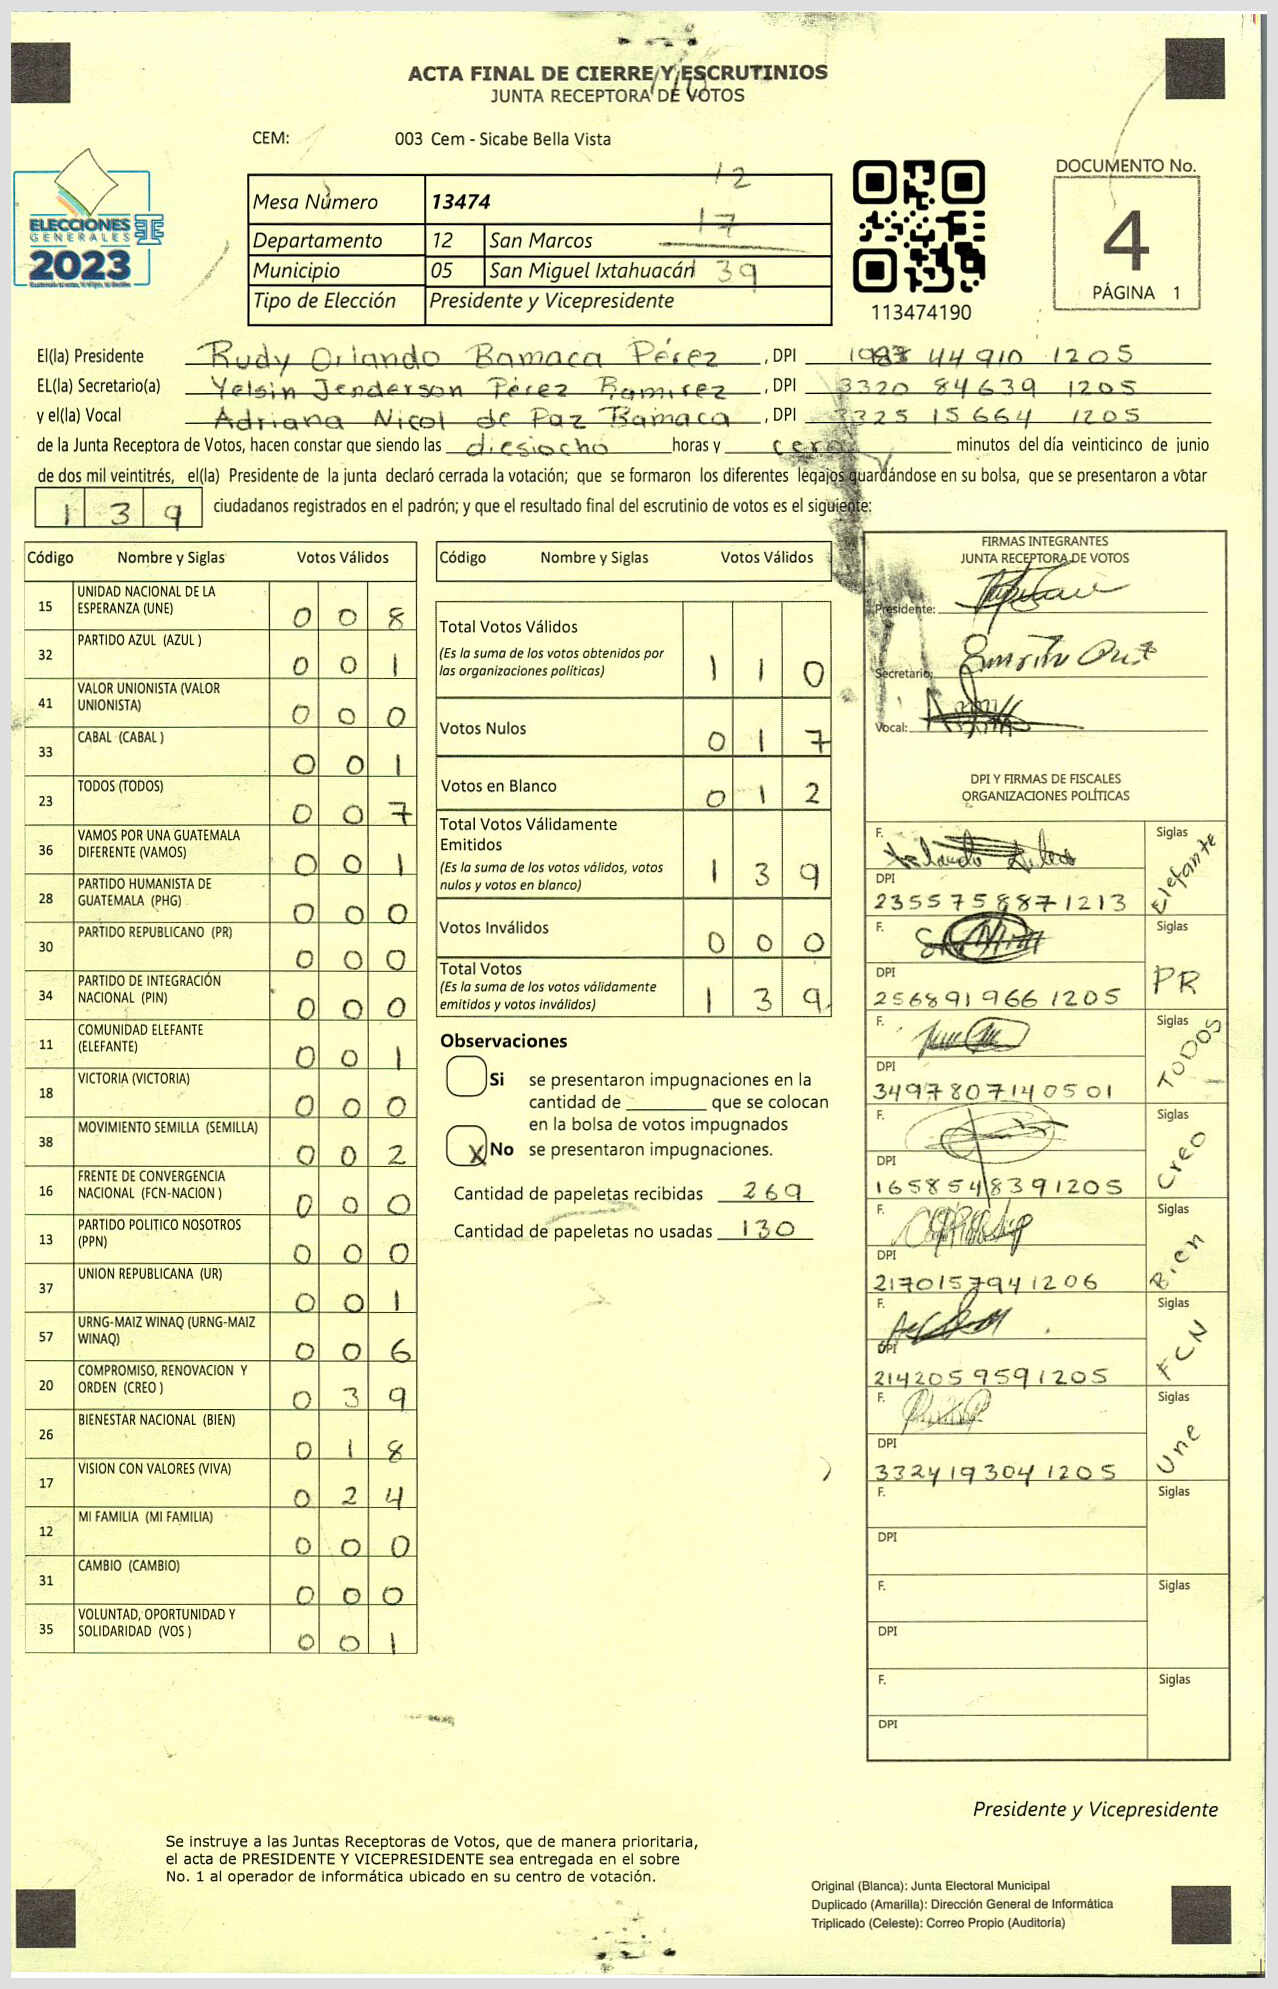 ACTA FINAL DE CIERRE Y ESCRUTINIOS
JUNTA RECEPTORA DE VOTOS
CEM: 003 Cem - Sicabe Bella Vista
ELECCIONES
GENERALES
2023
Mesa Número 13474
12
Departamento 12 San Marcos
17
Municipio 05 San Miguel Ixtahuacán
39
Tipo de Elección Presidente y Vicepresidente
113474190
DOCUMENTO No.
4
PÁGINA 1
El(la) Presidente Rudy Orlando Bamaca Pérez, DPI 44910 1205
EL(la) Secretario(a) Yelsin Jenderson Pérez Ramirez, DPI 3320 84639 1205
y el(la) Vocal Adriana Nicol de Paz Bamaca, DPI 3325 15664 1205
de la Junta Receptora de Votos, hacen constar que siendo las diesiocho horas y cero minutos del día veinticinco de junio
de dos mil veintitrés, el(la) Presidente de la junta declaró cerrada la votación; que se formaron los diferentes legajos guardándose en su bolsa, que se presentaron a votar
1 3 9 ciudadanos registrados en el padrón; y que el resultado final del escrutinio de votos es el siguiente:
Código Nombre y Siglas Votos Válidos
15 UNIDAD NACIONAL DE LA
ESPERANZA (UNE) 0 0 8
32 PARTIDO AZUL (AZUL ) 0 0 1
41 VALOR UNIONISTA (VALOR
UNIONISTA) 0 0 0
33 CABAL (CABAL ) 0 0 1
23 TODOS (TODOS) 0 0 7
36 VAMOS POR UNA GUATEMALA
DIFERENTE (VAMOS) 0 0 1
28 PARTIDO HUMANISTA DE
GUATEMALA (PHG) 0 0 0
30 PARTIDO REPUBLICANO (PR) 0 0 0
34 PARTIDO DE INTEGRACIÓN
NACIONAL (PIN) 0 0 0
11 COMUNIDAD ELEFANTE
(ELEFANTE) 0 0 1
18 VICTORIA (VICTORIA) 0 0 0
38 MOVIMIENTO SEMILLA (SEMILLA) 0 0 2
16 FRENTE DE CONVERGENCIA
NACIONAL (FCN-NACION ) 0 0 0
13 PARTIDO POLITICO NOSOTROS
(PPN) 0 0 0
37 UNION REPUBLICANA (UR) 0 0 1
57 URNG-MAIZ WINAQ (URNG-MAIZ
WINAQ) 0 0 6
20 COMPROMISO, RENOVACION Y
ORDEN (CREO ) 0 3 9
26 BIENESTAR NACIONAL (BIEN) 0 1 8
17 VISION CON VALORES (VIVA) 0 2 4
12 MI FAMILIA (MI FAMILIA) 0 0 0
31 CAMBIO (CAMBIO) 0 0 0
35 VOLUNTAD, OPORTUNIDAD Y
SOLIDARIDAD (VOS ) 0 0 1
Código Nombre y Siglas Votos Válidos
Total Votos Válidos
(Es la suma de los votos obtenidos por
las organizaciones políticas) 1 1 0
Votos Nulos 0 1 7
Votos en Blanco 0 1 2
Total Votos Válidamente
Emitidos
(Es la suma de los votos válidos, votos
nulos y votos en blanco) 1 3 9
Votos Inválidos 0 0 0
Total Votos
(Es la suma de los votos válidamente
emitidos y votos inválidos) 1 3 9
Observaciones
Si se presentaron impugnaciones en la
cantidad de ________ que se colocan
en la bolsa de votos impugnados
X No se presentaron impugnaciones.
Cantidad de papeletas recibidas 269
Cantidad de papeletas no usadas 130
FIRMAS INTEGRANTES
JUNTA RECEPTORA DE VOTOS
Presidente:
Secretario:
Vocal:
DPI Y FIRMAS DE FISCALES
ORGANIZACIONES POLÍTICAS
F. Siglas Elefante
DPI
2355758871213
F. Siglas PR
DPI
2568919661205
F. Siglas TODOS
DPI
3497807140501
F. Siglas Creo
DPI
1658548391205
F. Siglas Bien
DPI
2170157941206
F. Siglas FCN
DPI
2142059591205
F. Siglas Une
DPI
3324193041205
F. Siglas
DPI
F. Siglas
DPI
F. Siglas
DPI
Presidente y Vicepresidente
Se instruye a las Juntas Receptoras de Votos, que de manera prioritaria,
el acta de PRESIDENTE Y VICEPRESIDENTE sea entregada en el sobre
No. 1 al operador de informática ubicado en su centro de votación.
Original (Blanca): Junta Electoral Municipal
Duplicado (Amarilla): Dirección General de Informática
Triplicado (Celeste): Correo Propio (Auditoria)